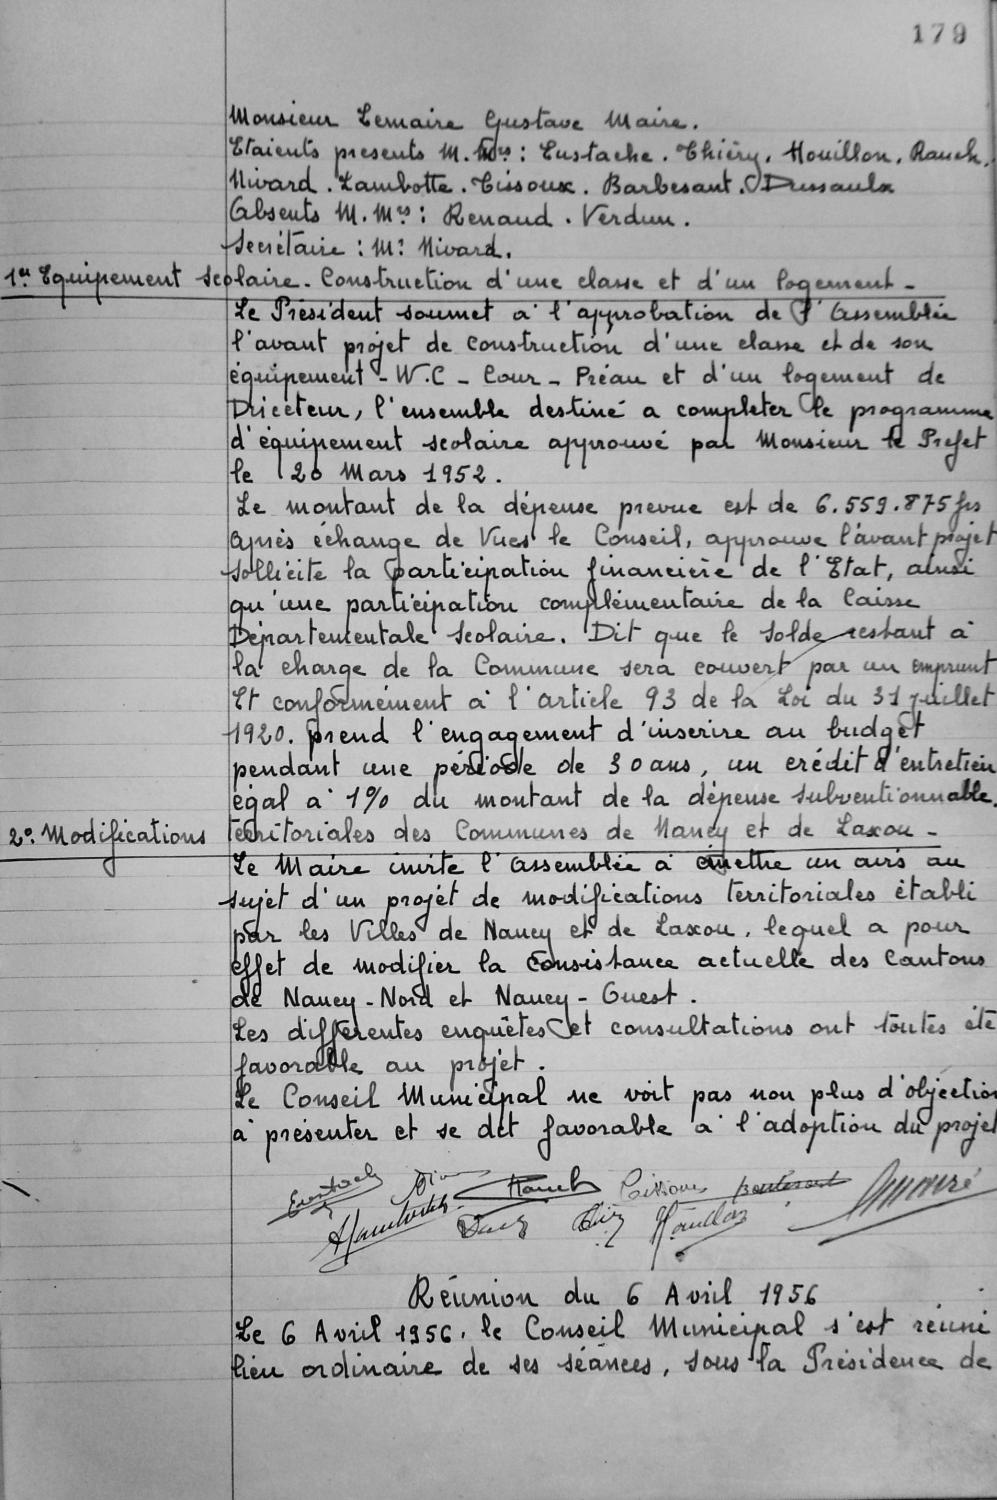 179
Monsieur Lemaire Gustave Maire.
Etaients presents M.Mrs : Eustache. Thiéry. Houillon. Rauch.
Nivard. Lambotte. Tissoux. Barbesant. Dussaulx
Absents M.Mrs : Renaud. Verdun.
Secrétaire : Mr Nivard.
1er Equipement scolaire. Construction d'une classe et d'un logement -
Le Président soumet à l'approbation de l'Assemblée
l'avant projet de construction d'une classe et de son
équipement - W.C - Cour - Préau et d'un logement de
Driccteur, l'ensemble destiné a completer le programme
d'équipement scolaire approuvé par Monsieur le Prefet
le 20 Mars 1952.
Le montant de la dépense prevue est de 6.559.875 frs
Après échange de Vues le Conseil, approuve l'avant projet
Sollicite la participation financière de l'Etat, ainsi
qu'une participation complémentaire de la Caisse
Départementale Scolaire. Dit que le Solde restant à
la charge de la Commune sera couvert par un emprunt
Et conformément à l'article 93 de la Loi du 31 juillet
1920. prend l'engagement d'inscrire au budget
pendant une période de 30 ans, un crédit d'entretien
égal à 1% du montant de la dépense subventionnable.
2o. Modifications territoriales des Communes de Nancy et de Laxou -
Le Maire invite l'assemblée à émettre un avis au
sujet d'un projet de modifications territoriales établi
par les Villes de Nancy et de Laxou, lequel a pour
effet de modifier la consistance actuelle des Cantons
de Nancy - Nord et Nancy - Ouest.
Les différentes enquêtes et consultations ont toutes été
favorable au projet.
Le Conseil Municipal ne voit pas non plus d'objection
à présenter et se dit favorable à l'adoption du projet
Réunion du 6 Avril 1956
Le 6 Avril 1956. le Conseil Municipal s'est réuni
lieu ordinaire de ses séances, sous la Présidence de